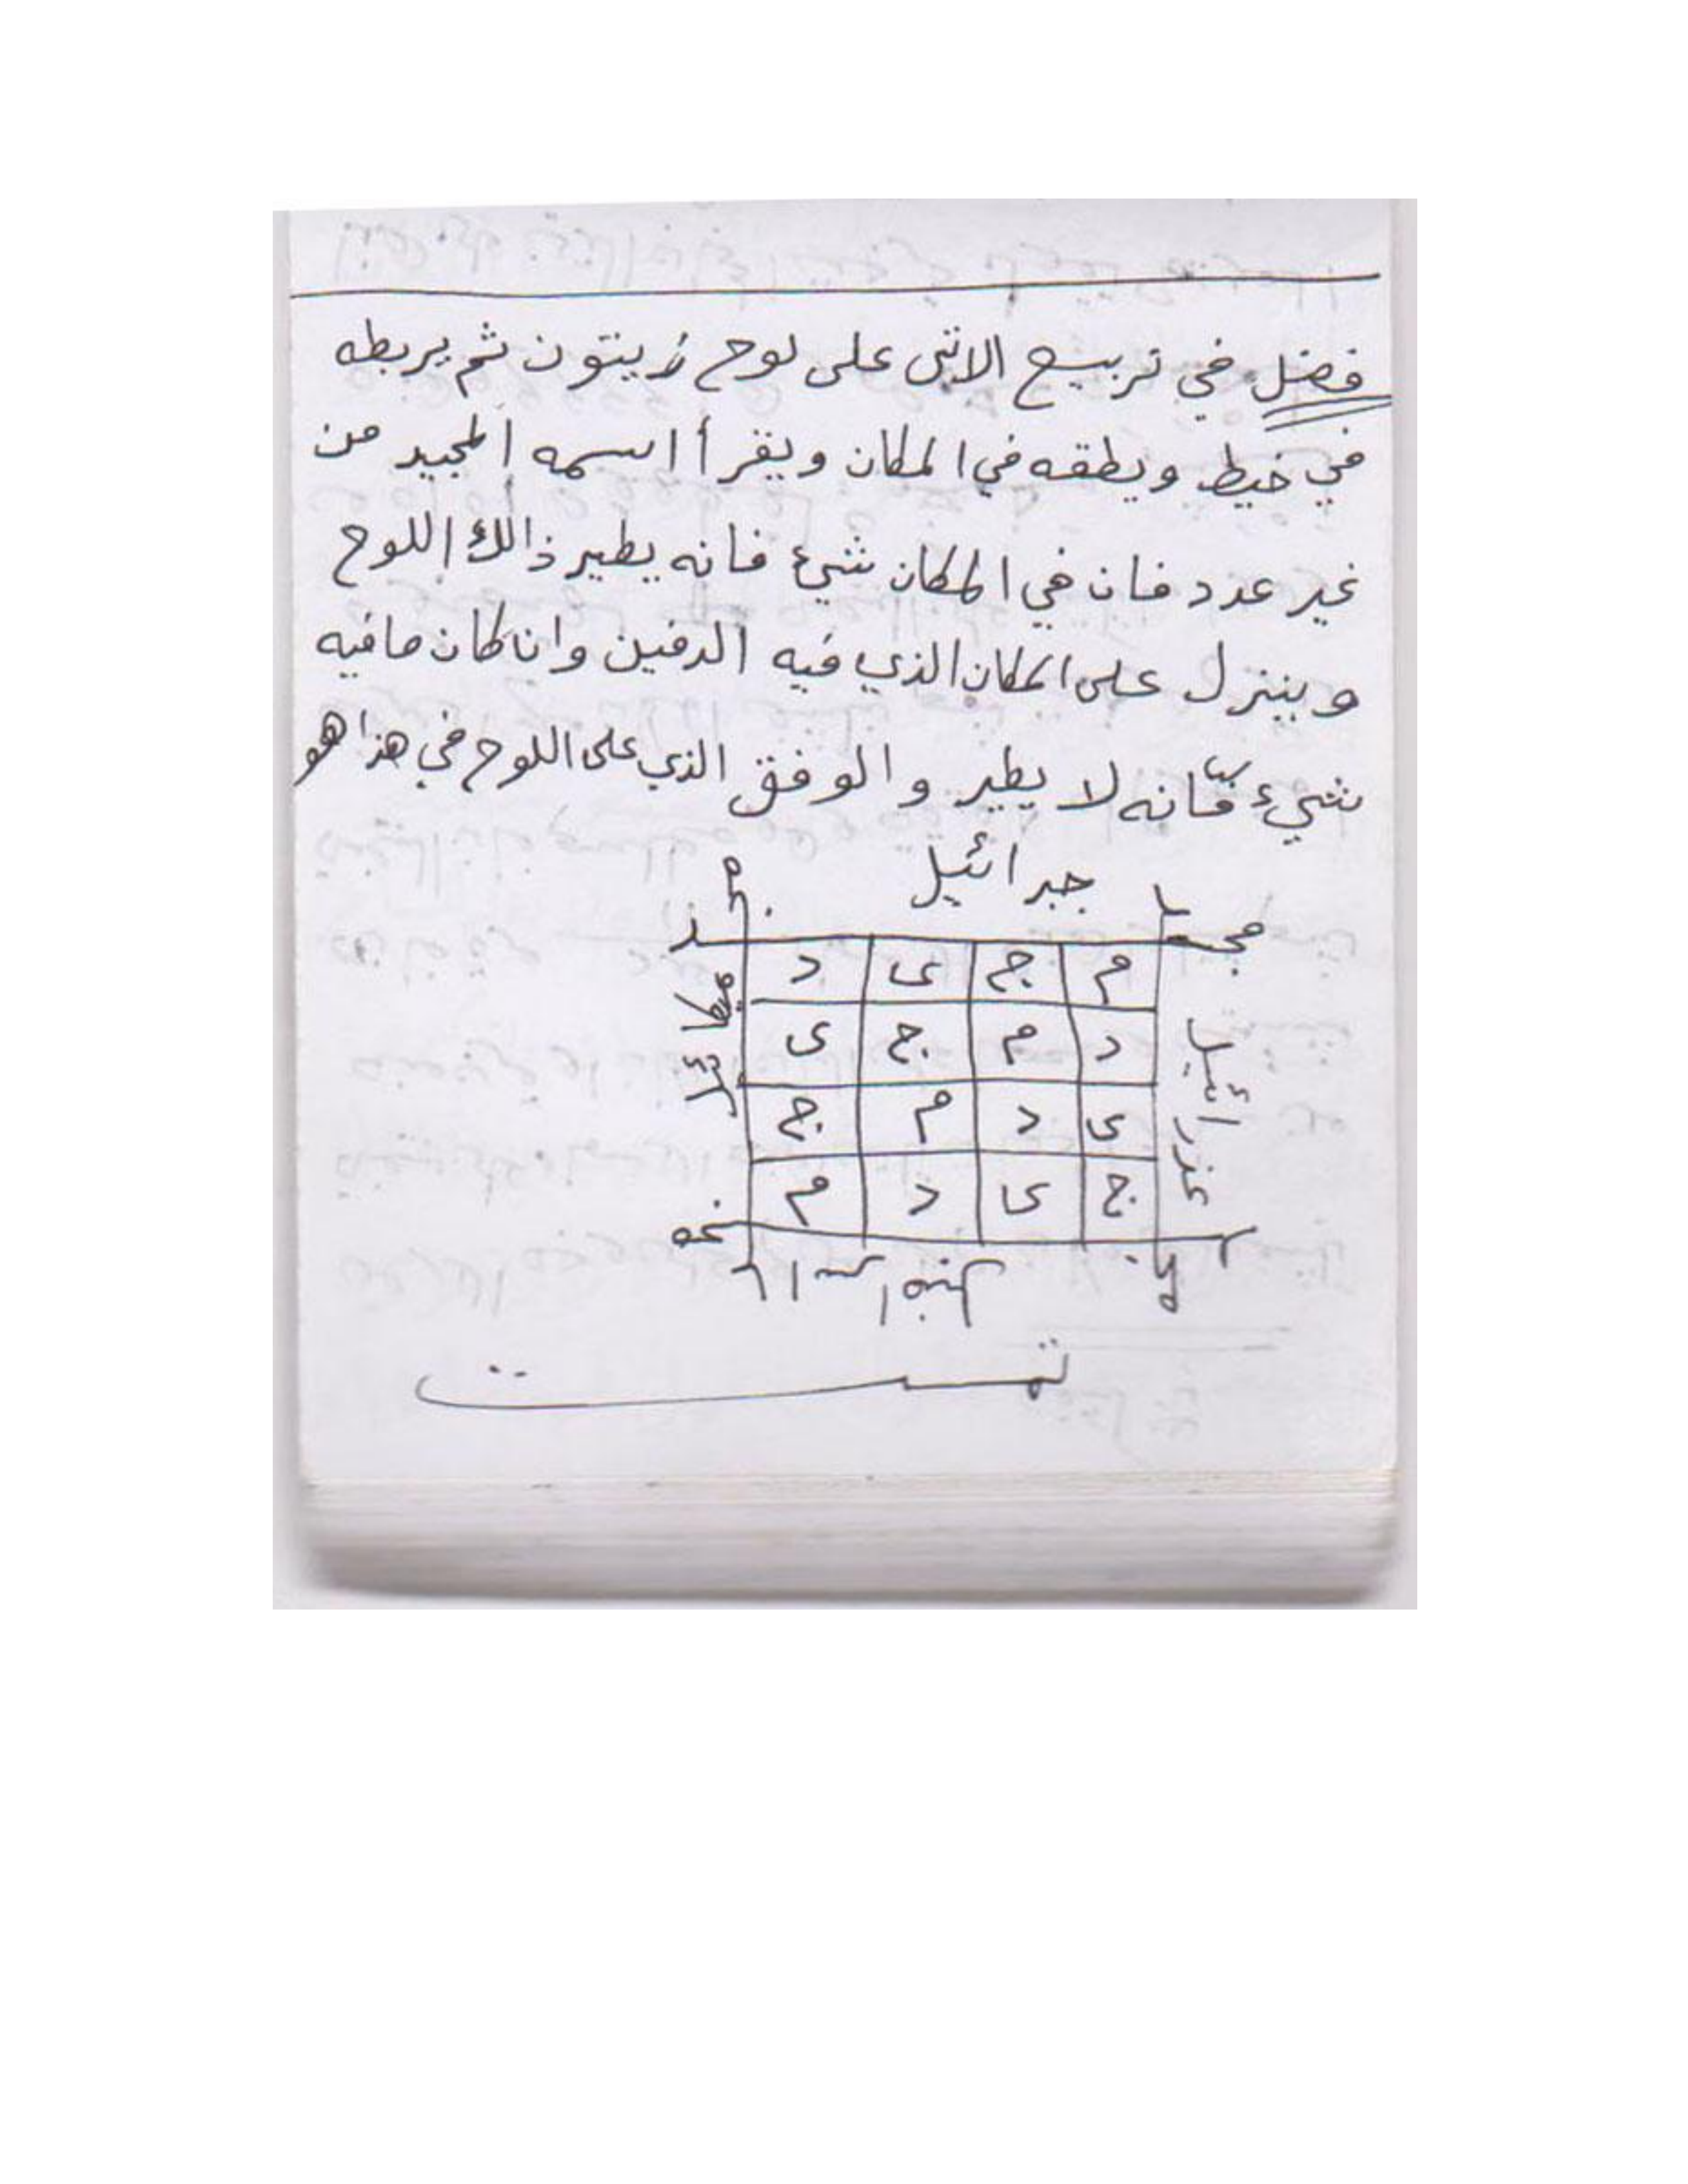 فصل في تربيع الانثى على لوح زيتون ثم يربطه
في خيط ويطقه في المكان ويقرأ اسمه المجيد من
غير عدد فان في المكان شيئ فانه يطير ذالك اللوح
وينزل على المكان الذي فيه الدفين وان كان مافيه
شيء فانه لا يطير والوفق الذي على اللوح في هذا هو
جبرائيل
م ج ى د
د م ج ى
ى د م ج
ج ى د م
ميكائل
عزرائيل
تمت